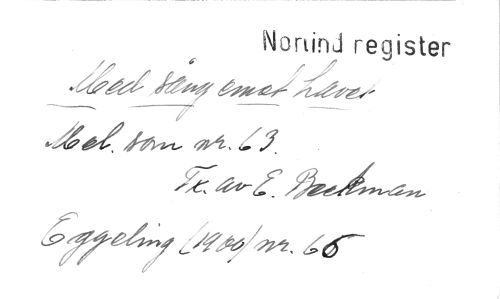 Norlind register
Med sång emot havet
Mel. som nr. 63.
Tx. av E. Beckman
Eggeling (1900) nr. 66